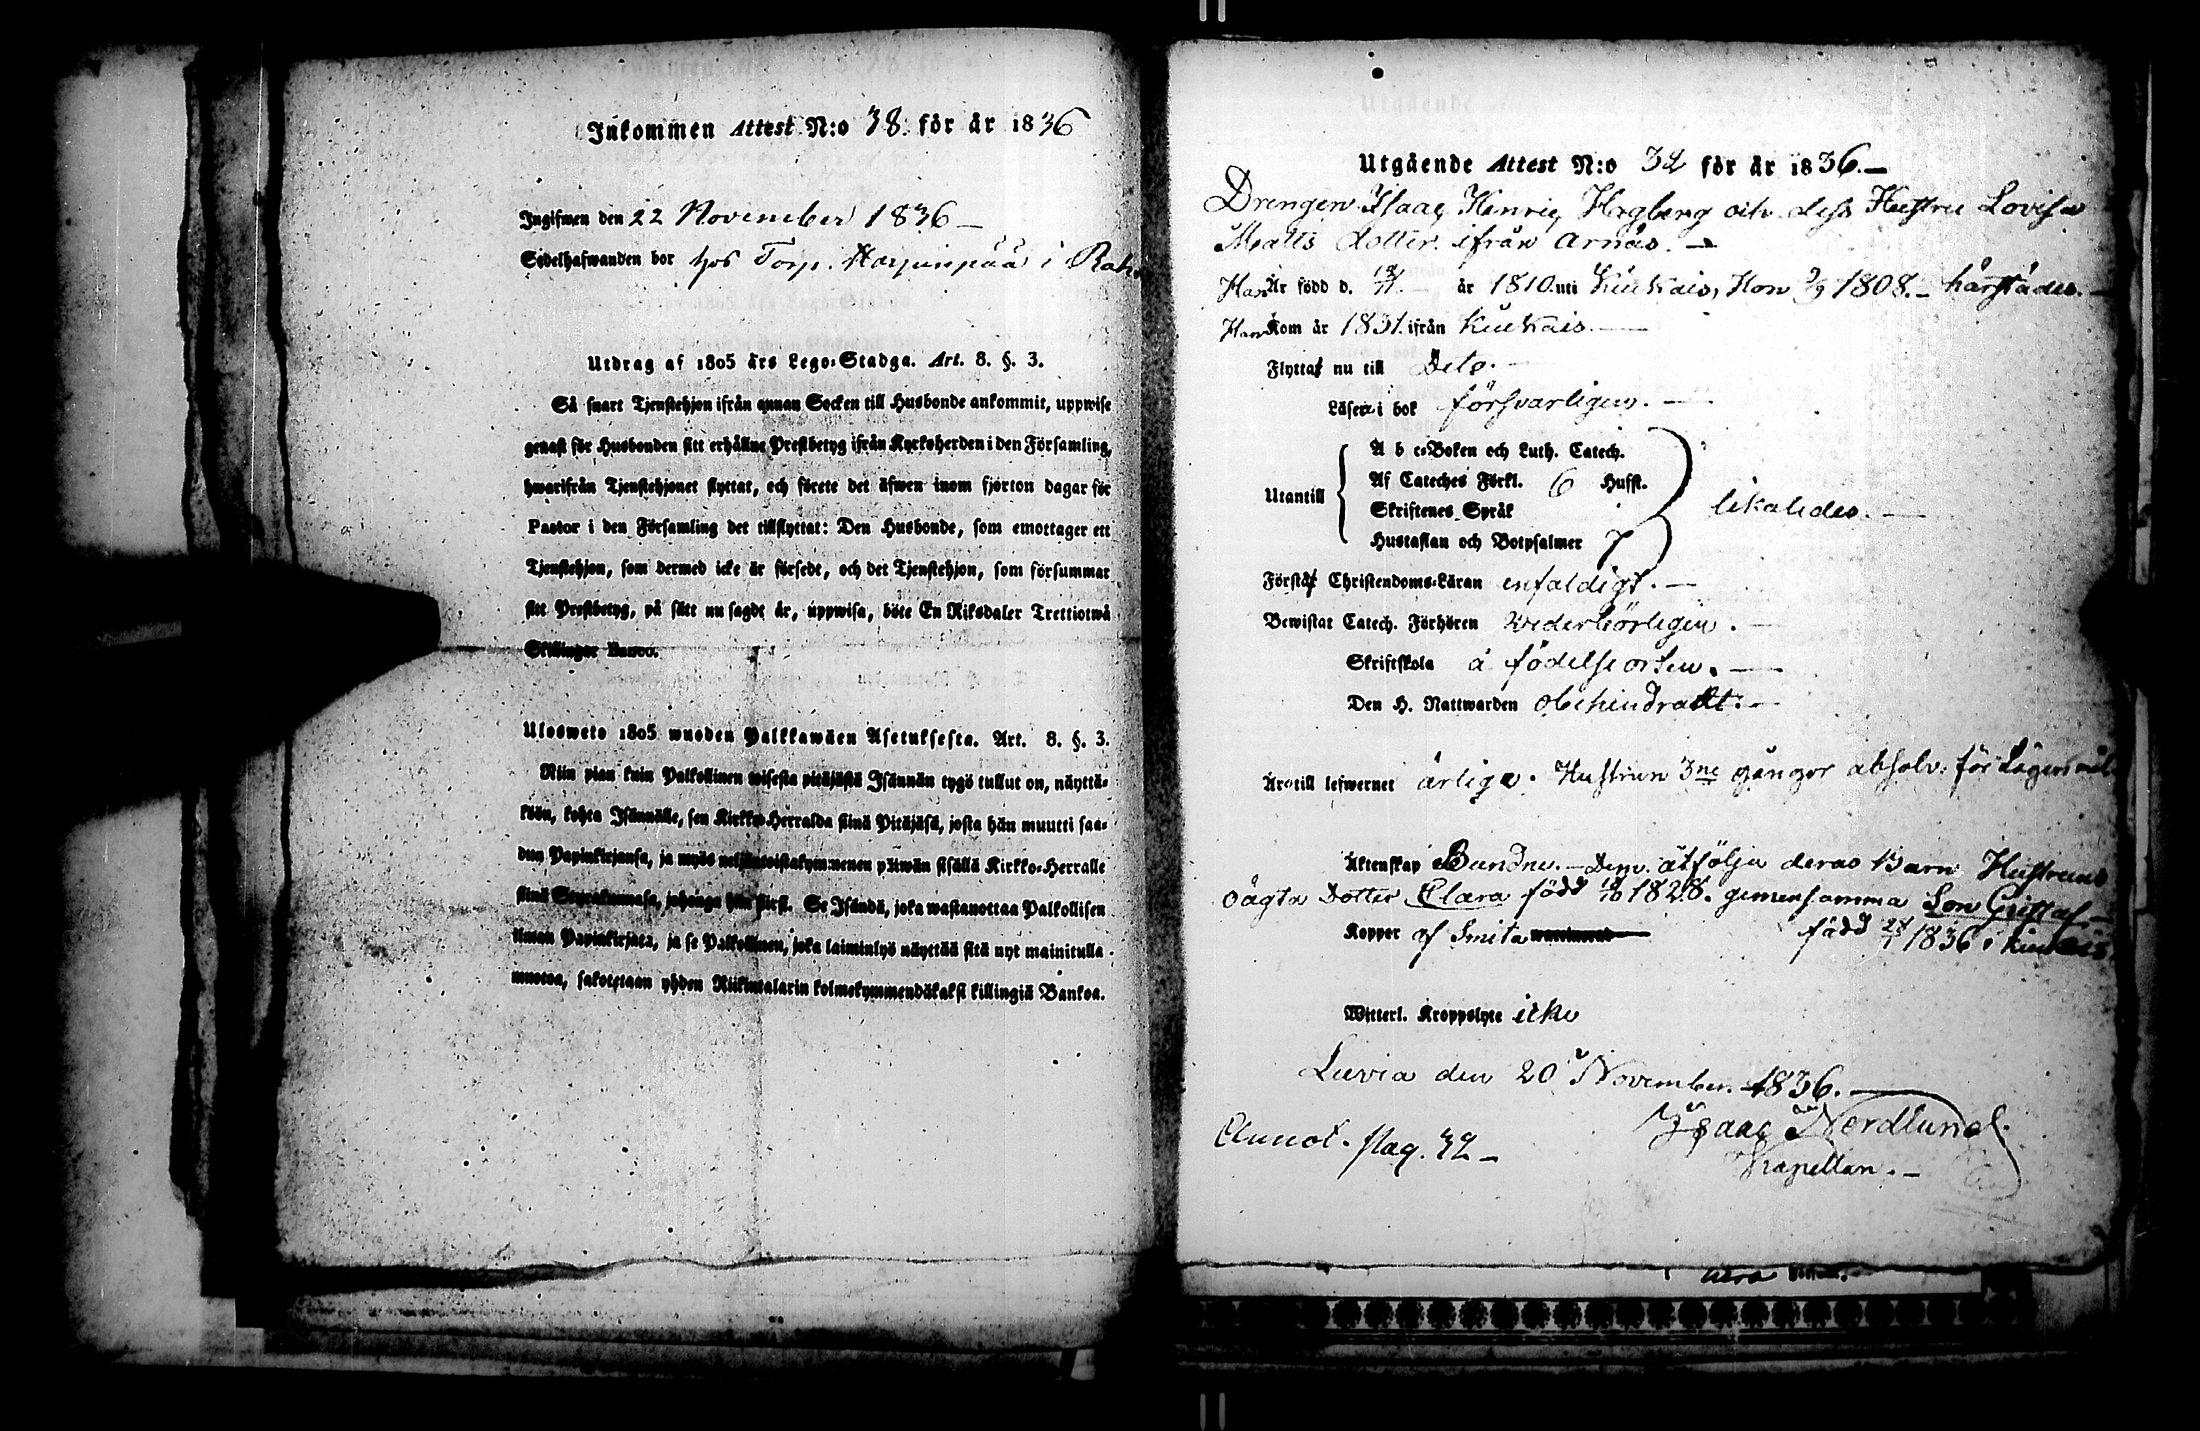 Inkommen Attest N:o 38. för år 1836
Ingifwen den 22 November 1836 –
Sedelhafwanden bor hos Torp. Harjunpää i
Utdrag af 1805 års Lego-Stadga. Art. 8. §. 3.
Så snart Tjenstehjon ifrån annan Socken till Husbonde ankommit, uppwise
genast för Husbonden sitt erhållne Prestbetyg ifrån Kyrkoherden i den Församling,
hwarifrån Tjenstehjonet flyttat, och förete det äfwen inom fjorton dagar för
Pastor i den Församling det tillflyttat: Den Husbonde, som emottager ett
Tjenstehjon, som dermed icke är försedt, och det Tjenstehjon, som försummar
sitt Prestbetyg, på sätt nu sagdt är, uppwisa, böte En Riksdaler Trettiotwå
Skillingar Banco.
Ulosweto 1805 wuoden Palkkawäen Asetuksesta. Art. 8. §. 3.
Niin pian kuin Palkollinen wisesta pitäjästä Isännän tygö tullut on, näyttä-
köön, kohta Isännälle, sen Kirkko-Herralda siinä Pitäjäsä, josta hän muutti saa-
dun Papinkirjansa, ja myös neljäntoistakymmenen päiwän sisällä Kirkko-Herralle
siinä Seurakunnasa, johonga hän siirsi. Se Isändä, joka wastanottaa Palkollisen
ilman Papinkirjata, ja se Palkollinen, joka laiminlyö näyttää sitä nyt mainitulla
muotoa, sakotetaan yhden Riikintalarin kolmekymmendäkaksi killingiä Bankoa.
Utgående Attest N:o 32 för år 1836. –
Drengen Isaac Henric Hagberg och dess Hustru Lovisa
Matts dotter ifrån Arnäs. –
Han Är född d. år 1810 uti Kiukais, Hon 1808. – härstädes. –
Han Kom år 1831. ifrån Kiukais. –
Flytta nu till Dito. –
Läsa i bok försvarligen. –
Utantill
A b c-Boken och Luth. Catech.
Af Cateches Förkl. 6 Hufst.
Skriftenes Språk
Hustaflan och Botpsalmer 7
likaledes. –
Förstå Christendoms-Läran enfaldigt. –
Bewistat Catech. Förhören wederbörligen. –
Skriftskola å födelseorten. –
Den H. Nattwarden obehindradt. –
Äro till lefwernet ärliga. Hustrun 3ne gångor absolv: för Lägersmål
Äktenskap Bundne. – Dem åtfölja deras Barn Hustruns
oägta Dotter Clara född 1828. gemensamma Son Gustaf –
född 1836 i Kiukais
Koppor af Smitta
Witterl. Kroppslyte icke
Luvia den 20 November 1836. –
Isaac Nordlund.
Kapellan. –
Annot. pag. 32 –